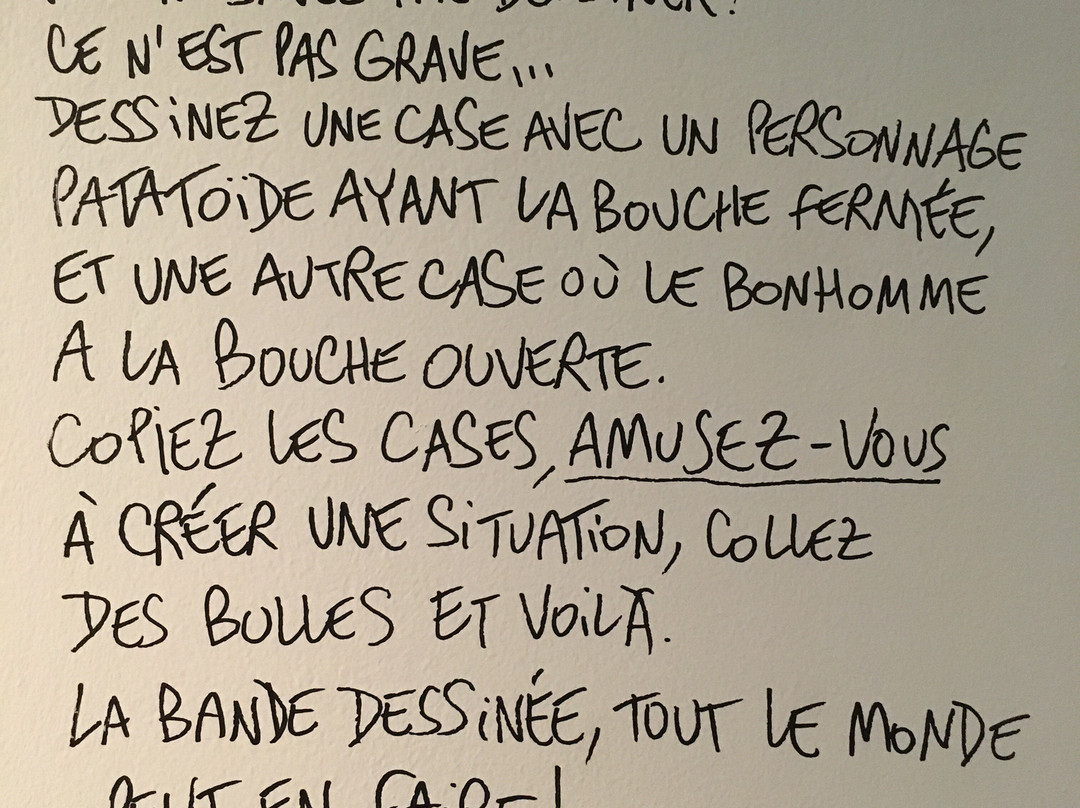 SAVEZ PAS DESSINER ?
CE N'EST PAS GRAVE...
DESSINEZ UNE CASE AVEC UN PERSONNAGE
PATATOÏDE AYANT LA BOUCHE FERMÉE,
ET UNE AUTRE CASE OÙ LE BONHOMME
A LA BOUCHE OUVERTE.
COPIEZ LES CASES, AMUSEZ-VOUS
À CRÉER UNE SITUATION, COLLEZ
DES BULLES ET VOILÀ.
LA BANDE DESSINÉE, TOUT LE MONDE
PEUT EN FAIRE !